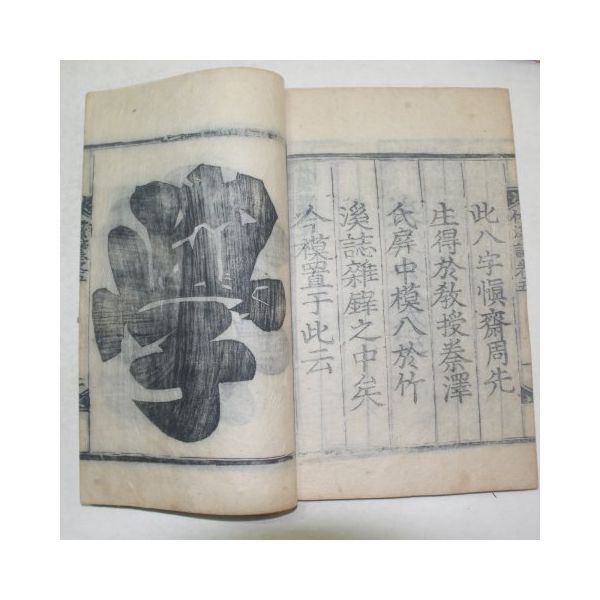 此八字愼齋周先
生得於敎授秦澤
氏屛中模入於竹
溪誌雜錄之中矣
今模置于此云
學